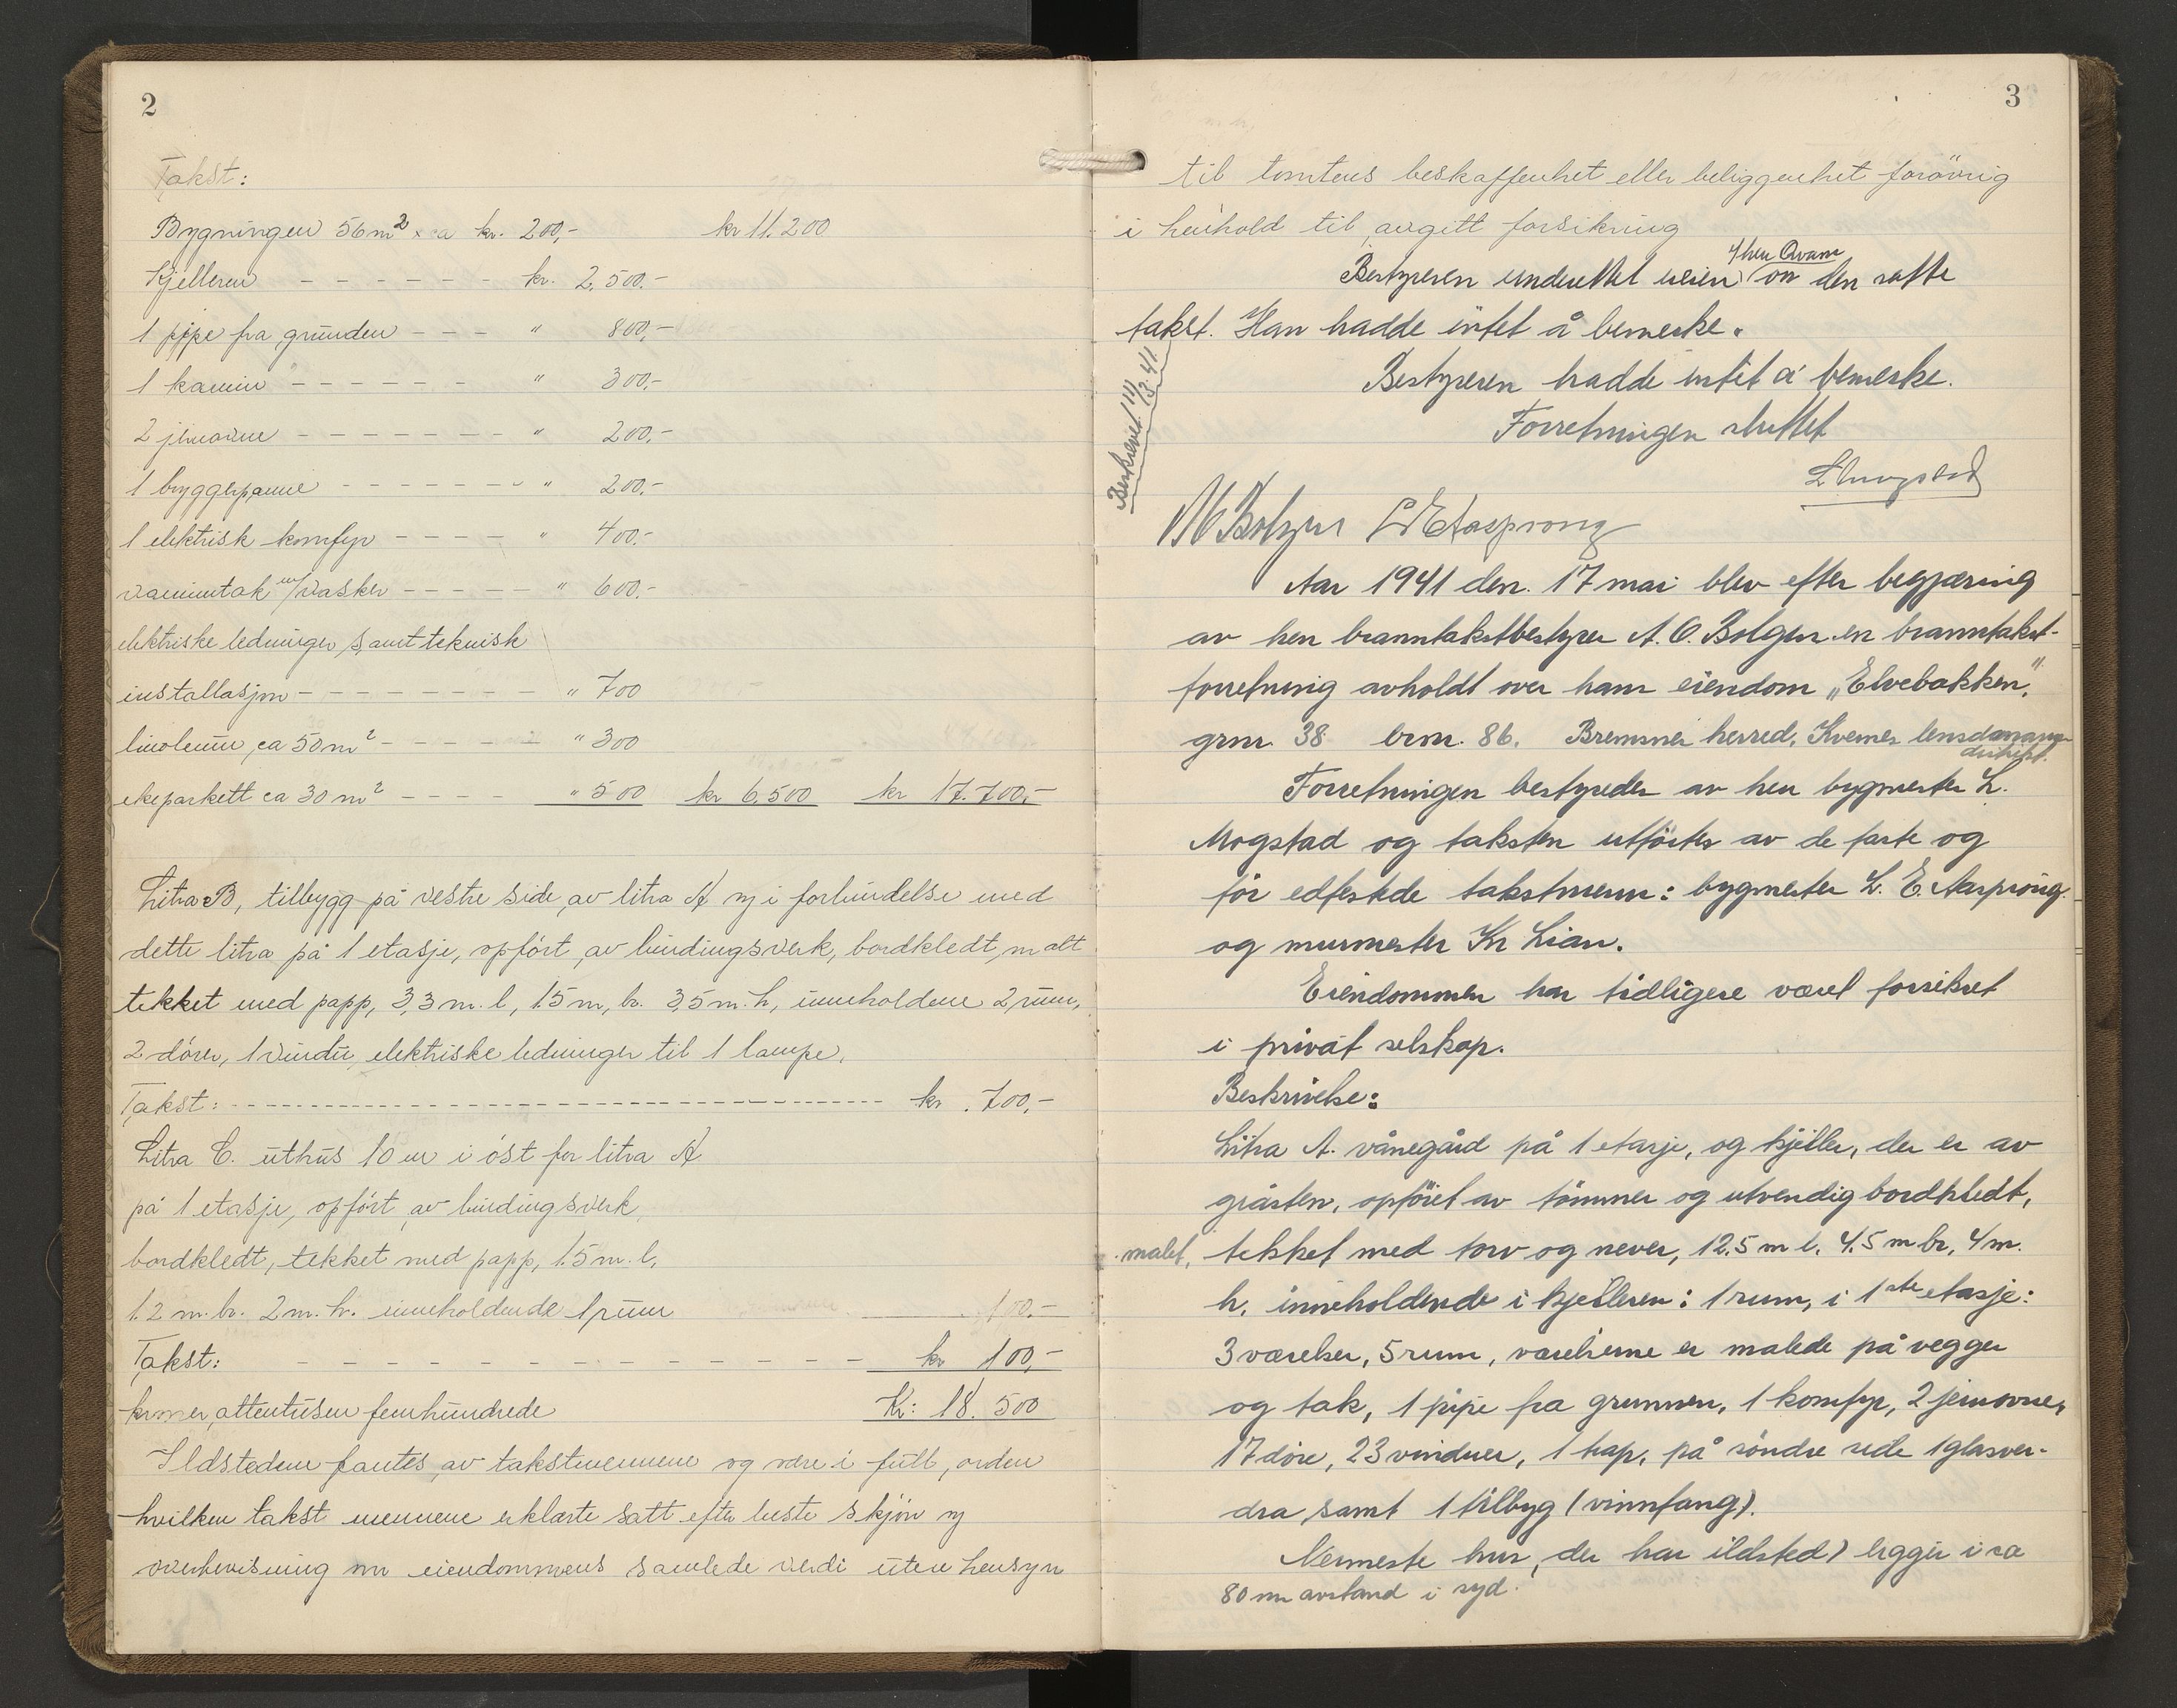 2
Takst:
Bygningen 56 m² x a kr. 200,- kr 11.200
Kjelleren - - - - - - - kr. 2.500.-
1 pipe fra grunden - - - " 800,-
1 kamin - - - - - - " 300,-
2 jernovne - - - - - - - " 200,-
1 bryggepanne - - - - - - - " 200,-
1 elektrisk komfyr - - - - " 400.-
vanninntak m/vasker - - - - - " 600.-
elektriske ledninger, samt teknisk
installasjon - - - - - - - - " 700
linoleum, ca 50 m² - - - - - " 300
ekeparkett ca 30 m² - - - - " 500 kr 6.500 kr 17.700,-
Litra B, tilbygg på vestre side, av litra A og i forbindelse med
dette litra på 1 etasje, opført, av bindingsverk, bordkledt, malt
tekket med papp, 3,3 m. l, 1.5 m, br. 3,5 m. h, inneholdene 2 rum,
2 dører, 1 vindu, elektriske ledninger til 1 lampe.
Takst: - - - - - - - - - - - - - - - - kr. 700,-
Litra C. uthus 10 m i øst for litra A
på 1 etasje, opført, av bindingsverk,
bordkledt, tekket med papp, 1.5 m. l,
1.2 m. br. 2 m. h. inneholdende 1 rum 100.-
Takst: - - - - - - - - - - - - - - kr 100,-
kroner, attentusen femhundrede Kr: 18.500
Ildstedene fantes, av takstmennene og være i full, orden
hvilken takst mennene erklærte satt efter beste skjøn og
overbevisning om eiendommens samlede verdi uten hensyn
3
til tomtens beskaffenhet eller beliggenhet forøvrig
i henhold til avgitt forsikring
Bestyreren underrettet eieren v/ herr Qvam om den satte
takst. Han hadde intet å bemerke.
Bestyreren hadde intet å bemerke.
Forretningen sluttet
L Mogstad
Beskrevet 14/3.41
M Bolgen L E Aasprong
Aar 1941 den. 17 mai blev efter begjæring
av herr branntakstbestyrer A. O. Bolgen en branntakst-
forretning avholdt over hans eiendom „Elvebakken",
grnr. 38 brnr. 86. Bremsnes herred, Kvernes lensdmanns-
distrikt.
Forretningen bestyredes av herr bygmester L.
Mogstad og taksten utførtes av de faste og
før edfestede takstmenn: bygmester L. E. Aasprong
og murmester Kr Lian.
Eiendommen har tidligere været forsikret
i privat selskap.
Beskrivelse:
Litra A. vånegård på 1 etasje, og kjeller, der er av
gråsten, opføret av tømmer og utvendig bordkledt,
malet, tekket med torv og never, 12.5 m l. 4.5 m br, 4 m.
h, inneholdende i kjelleren: 1 rum, i 1ste etasje:
3 værelser, 5 rum, værelserne er malede på vegger
og tak, 1 pipe fra grunnen, 1 komfyr, 2 jernovner,
17 døre, 23 vinduer, 1 trap, på søndre side 1 glasver-
dra, samt 1 tilbyg (vinnfang).
Nermeste hus, (der har ildsted) ligger i ca
80 m avstand i syd.